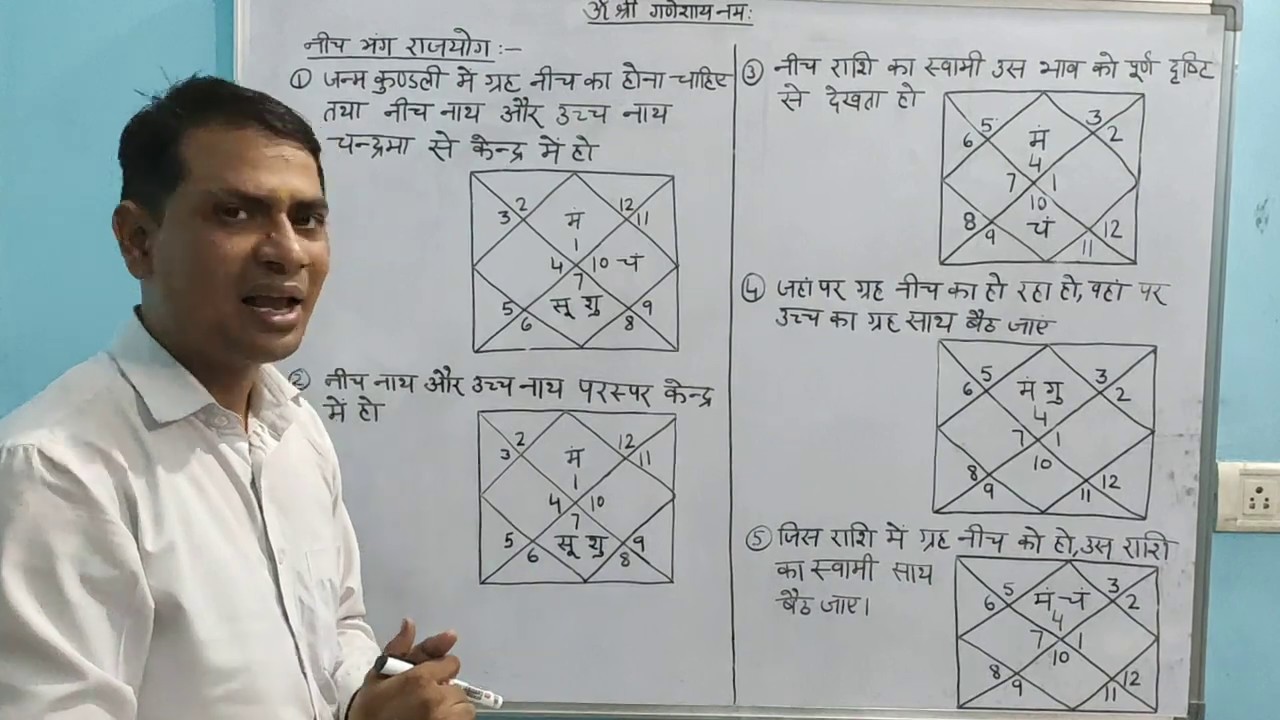 ॐ श्री गणेशाय नमः
नीच भंग राजयोग :-
① जन्म कुण्डली में ग्रह नीच का होना चाहिए
तथा नीच नाथ और उच्च नाथ
चन्द्रमा से केन्द्र में हो
2 12
3 मं 11
1
4 10 चं
7
5 सू शु 9
6 8
② नीच नाथ और उच्च नाथ परस्पर केन्द्र
में हो
2 12
3 मं 11
1
4 10
7
5 सू शु 9
6 8
③ नीच राशि का स्वामी उस भाव को पूर्ण दृष्टि
से देखता हो
5 3
6 मं 2
4
7 1
10
8 चं 12
9 11
④ जहां पर ग्रह नीच का हो रहा हो, वहां पर
उच्च का ग्रह साथ बैठ जाए
5 3
6 मं गु 2
4
7 1
10
8 12
9 11
⑤ जिस राशि में ग्रह नीच को हो, उस राशि
का स्वामी साथ
बैठ जाए।
5 3
6 मं चं 2
4
7 1
10
8 12
9 11